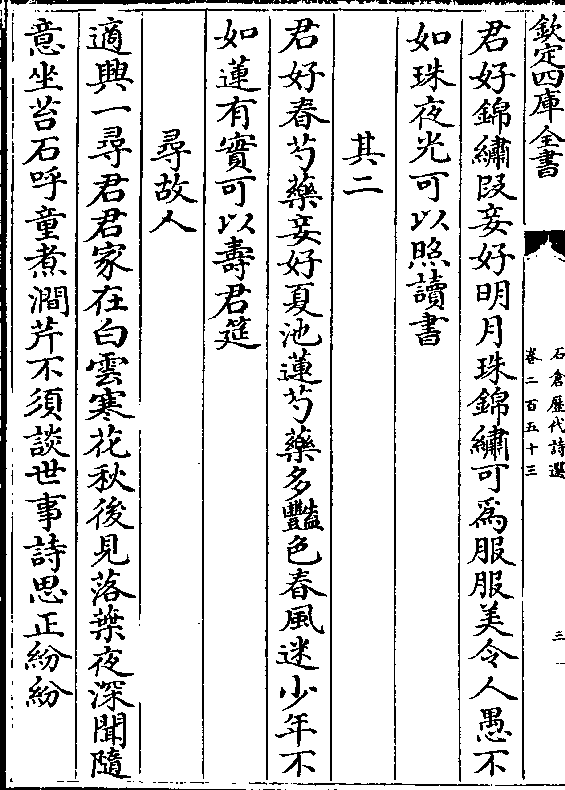 欽定四庫全書
石倉歷代詩選
卷二百五十三
三
君好錦繡段妾好明月珠錦繡可為服服美令人愚不
如珠夜光可以照讀書
其二
君好春芍藥妾好夏池蓮芍藥多豔色春風迷少年不
如蓮有實可以壽君筵
尋故人
適興一尋君君家在白雲寒花秋後見落葉夜深聞隨
意坐苔石呼童煮澗芹不須談世事詩思正紛紛